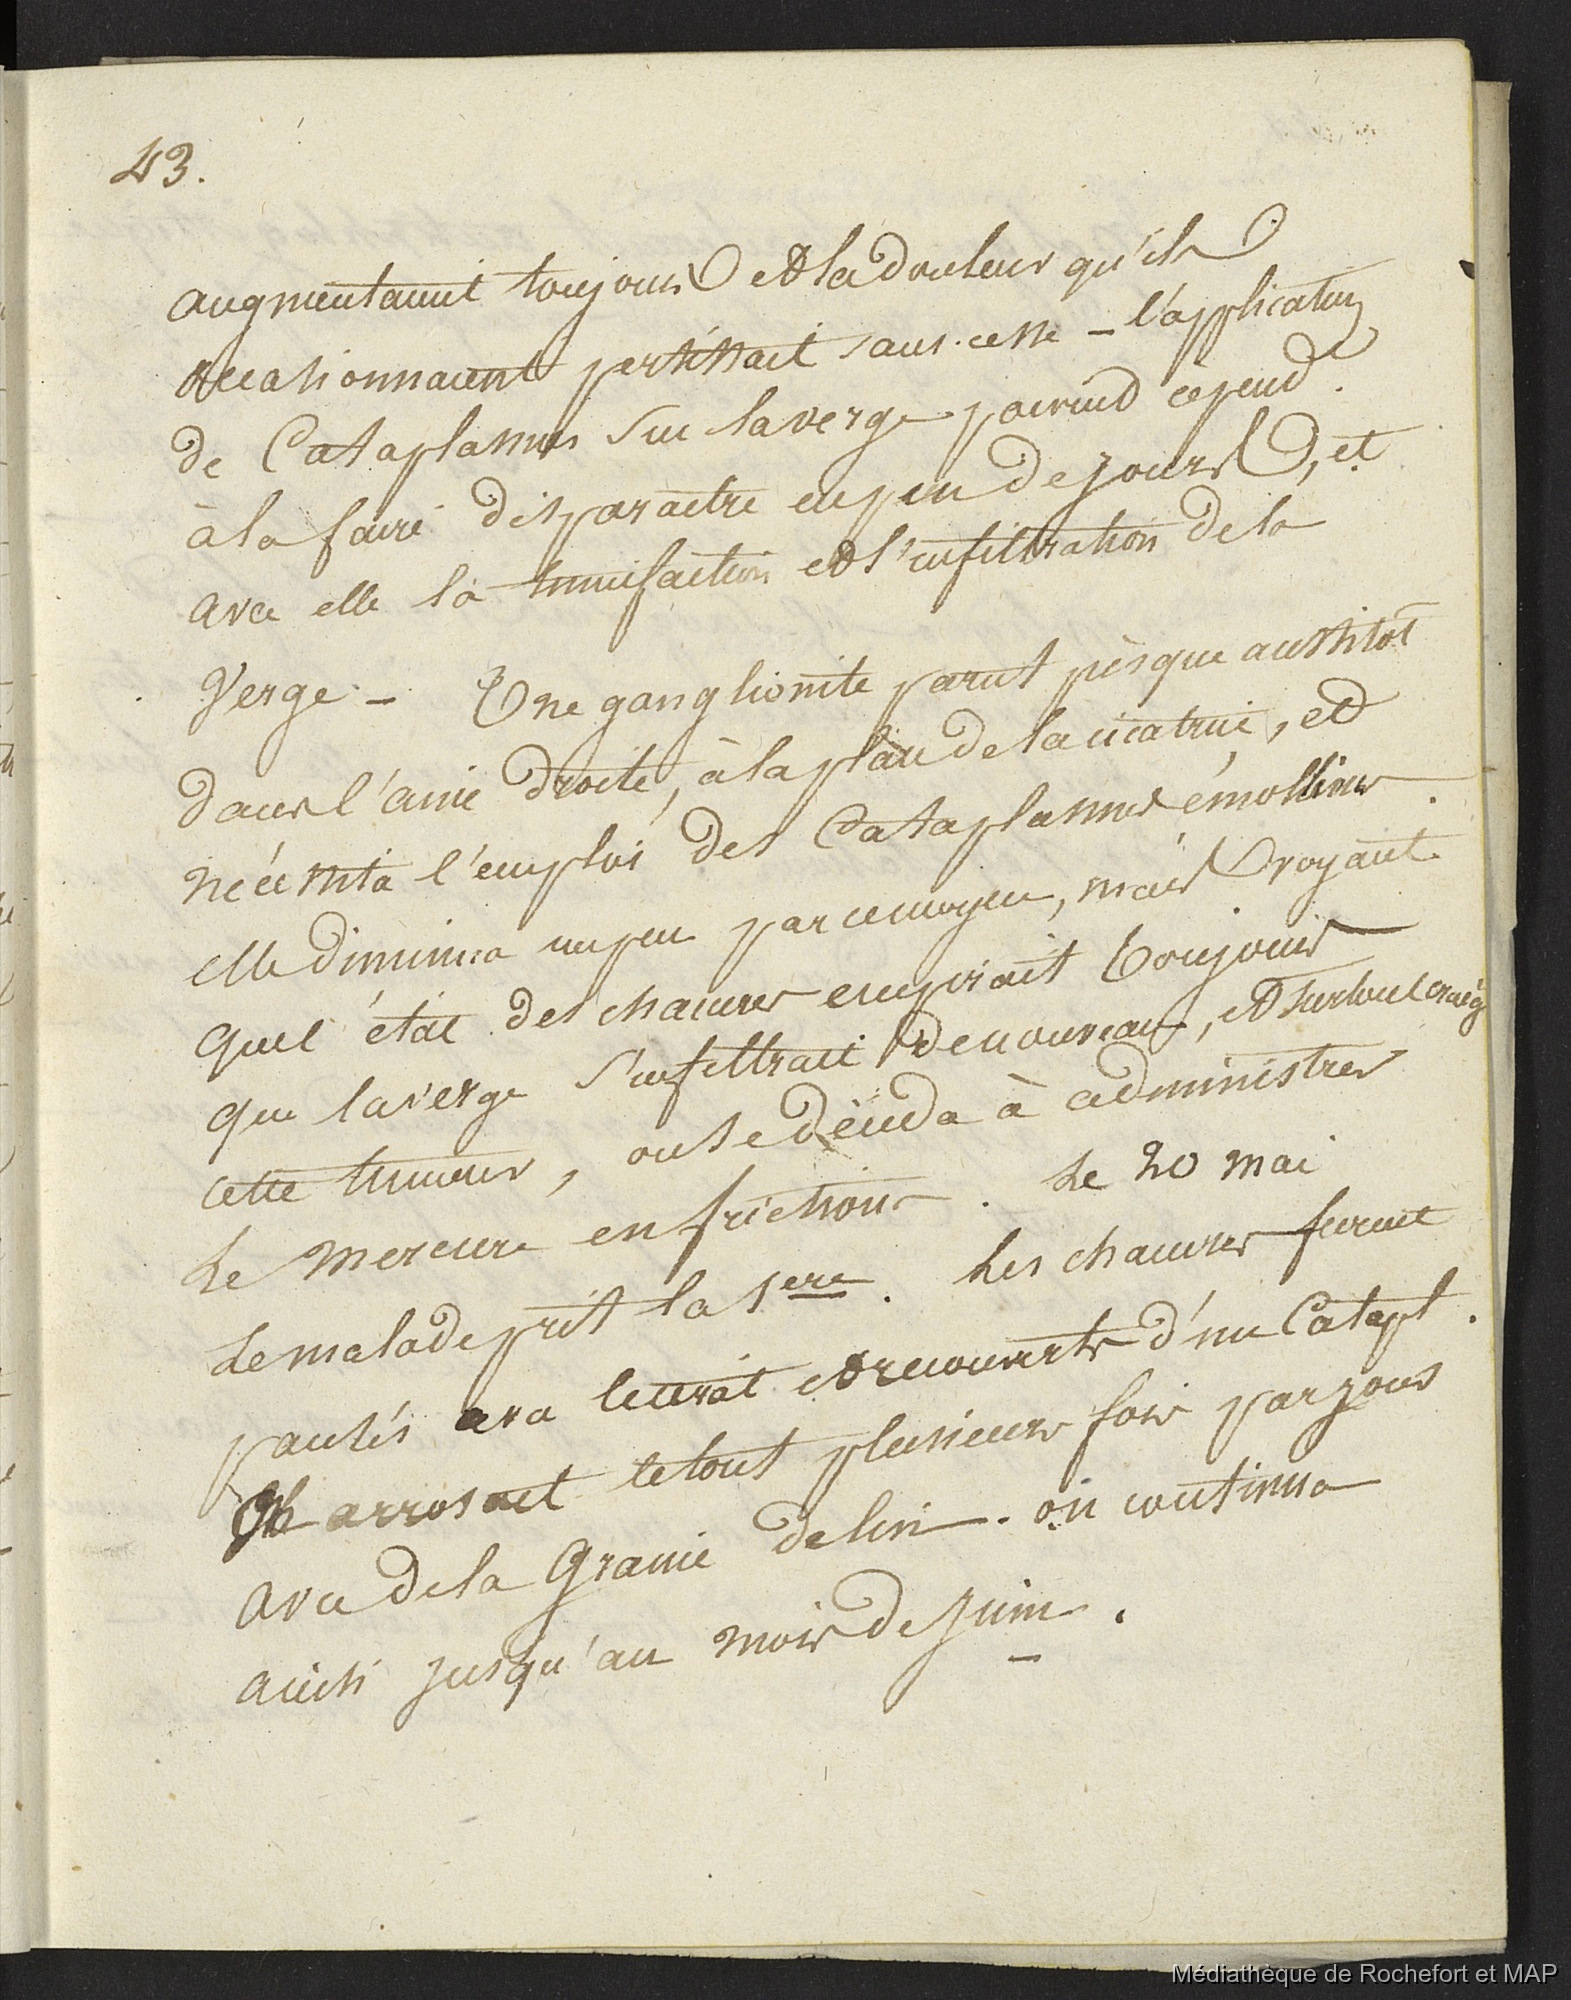 43.
augmentaient toujours et la douleur qu'ils
occasionnaient persistait sans cesse – l'application
de Cataplasmes sur la verge parvint cepend.
à la faire disparaitre en peu de jours, et
avec elle la tumefaction et l'infiltration de la
Verge – Une ganglionite parut presque aussitot
dans l'aine droite, à la place de la cicatrice, et
nécessita l'emploi des Cataplasmes émolliens.
elle diminua un peu par ce moyen, mais voyant
que l'état des chancres empirait toujours
que la verge s'infiltrait de nouveau, et surtout
cette tumeur, on se décida à administrer
Le Mercure en frictions. Le 20 Mai
Le malade prit la 1ere. Les chancres furent
pansés avec le cerat et recouverts d'un Catapl.
On arrosait le tout plusieurs fois par jour
avec de la Graine de lin. on continua
ainsi jusqu'au mois de Juin.
Médiathèque de Rochefort et MAP